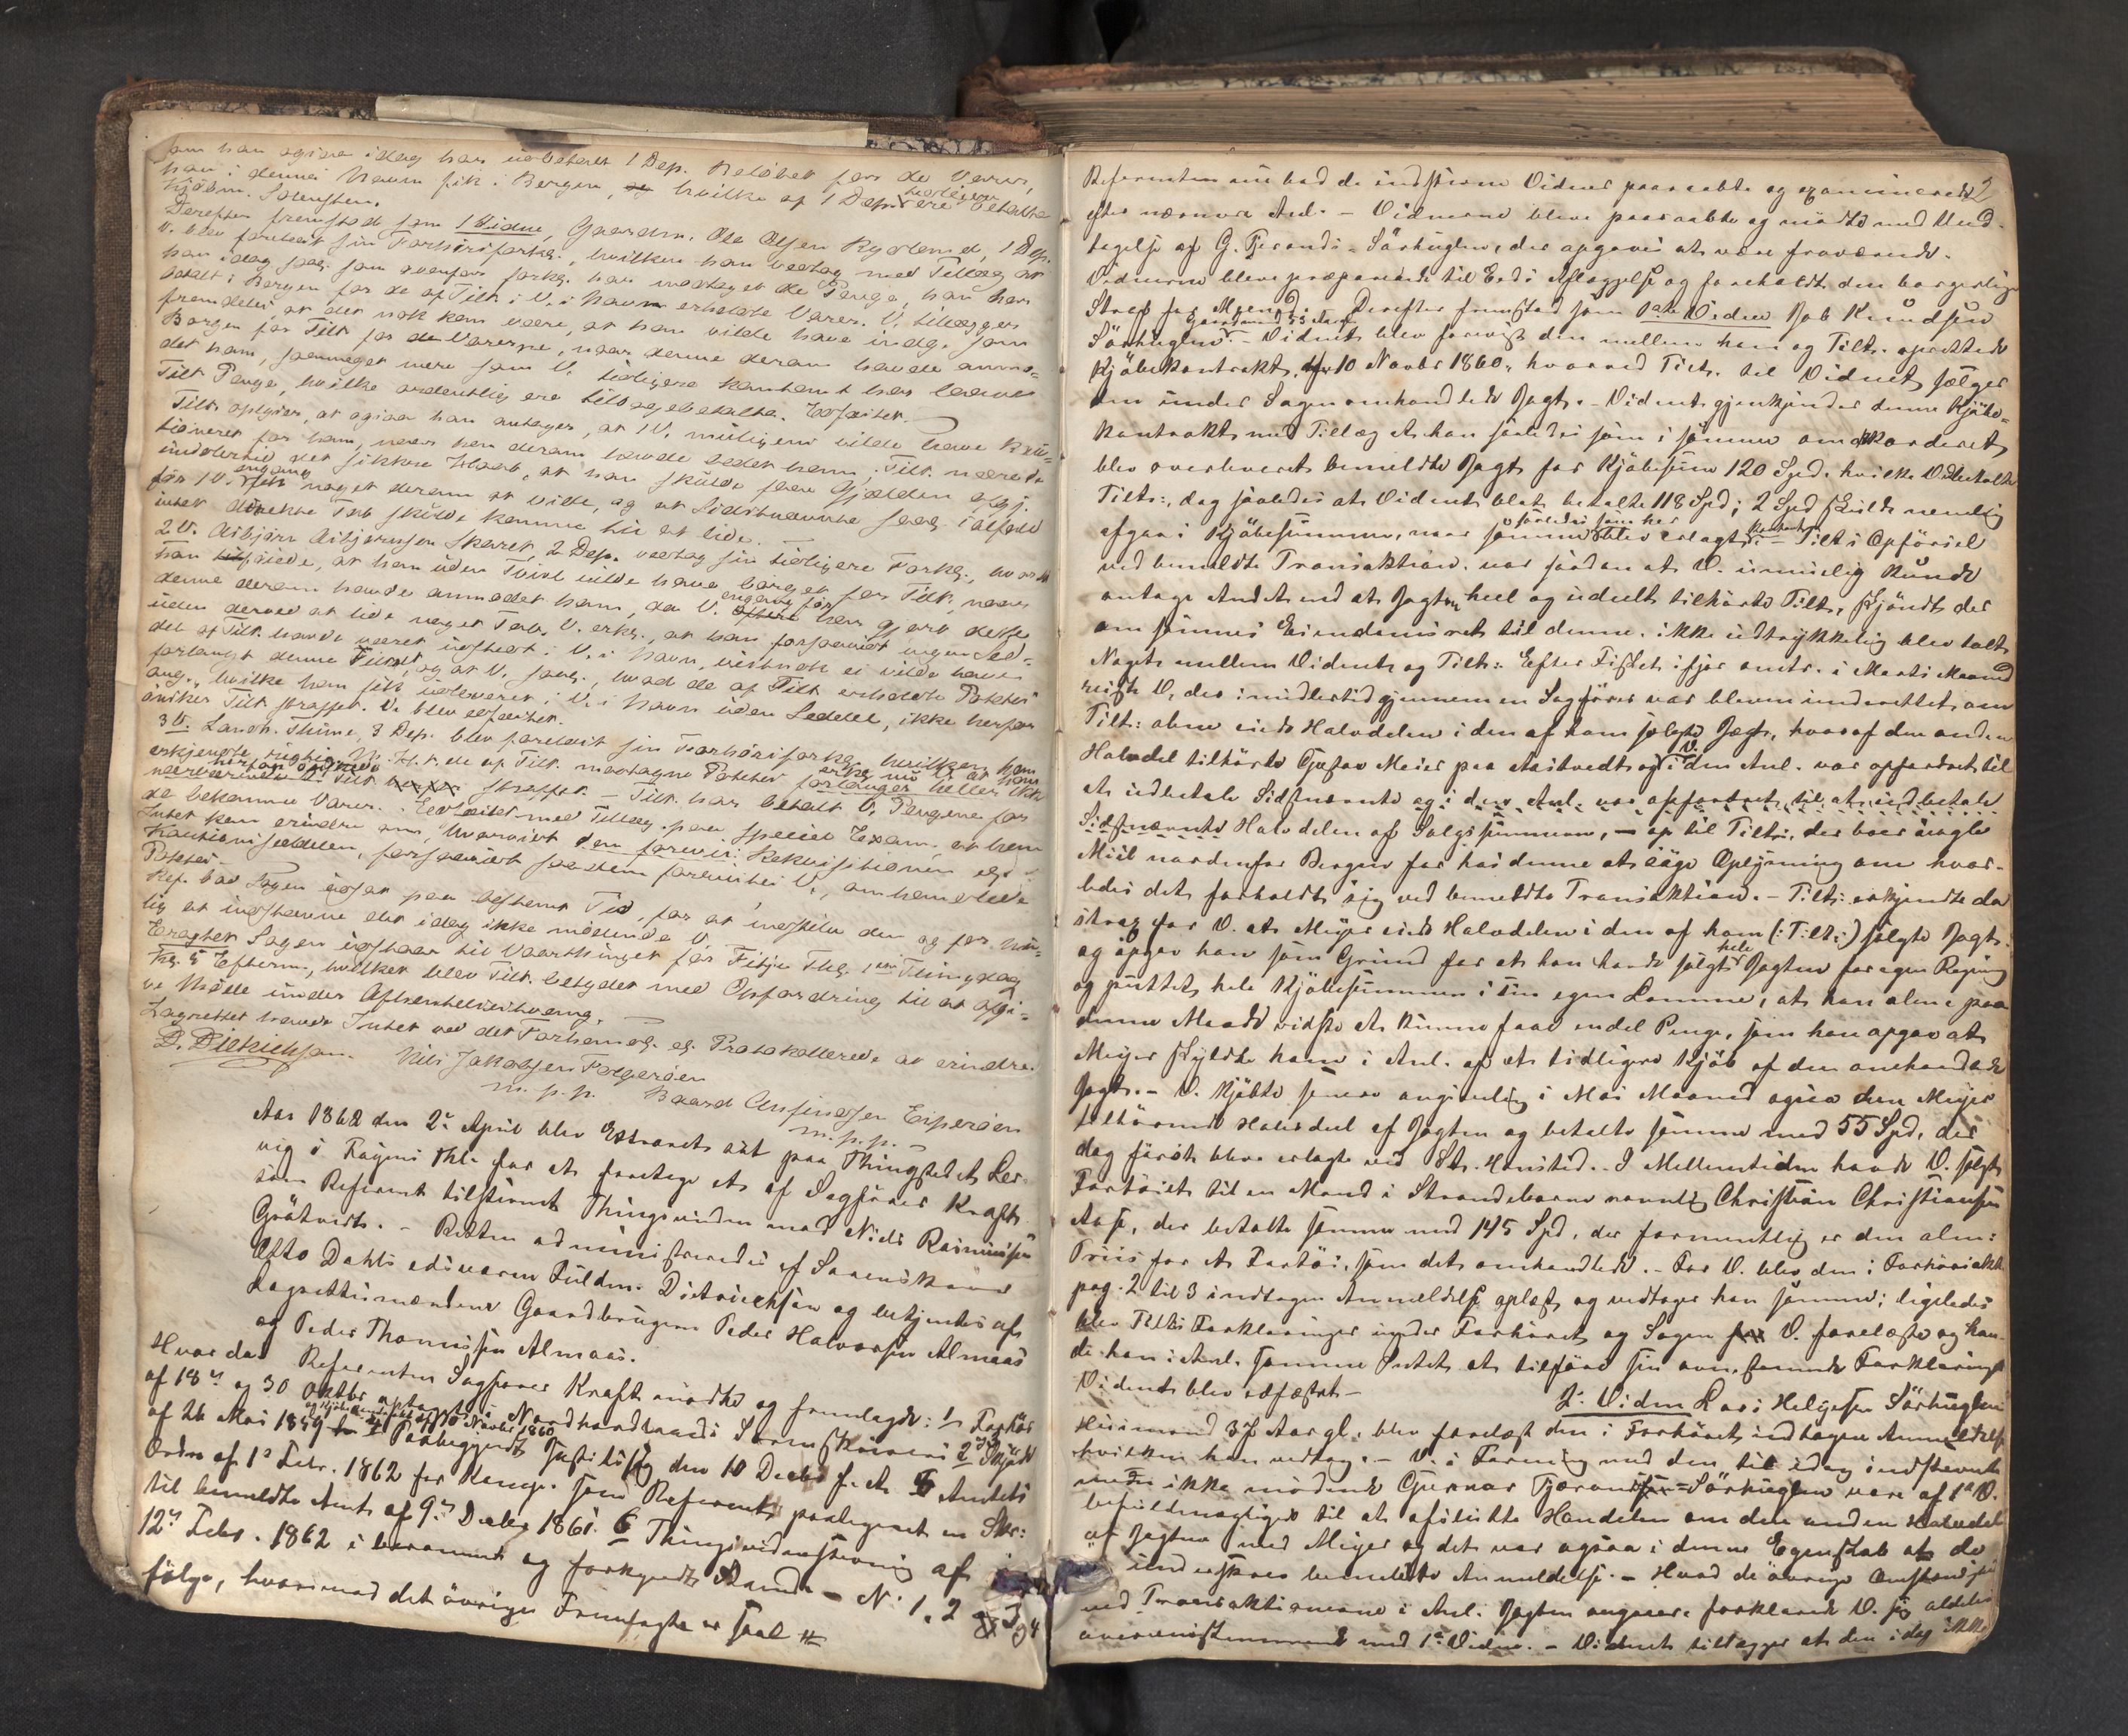 som han ogsaa idag har udbetalt 1 Dep. Beløbet for de Varer,
han i dennes Navn fik i Bergen, og hvilke af 1 Dep. ere tidligere betalte
Kjøbm. Solensten.
Derefter fremstod som 1 Vidne, Gaardm. Ole Olsen Rydland, 1 Dep.
V. blev forelæst sin Forhørsforkl., hvilken han vedtog med Tillæg at
han idag saa som ovenfor forkl. har modtaget de Penge, han har
betalt i Bergen for de af Tilt. i V.s Navn erholdte Varer. V. tillægger
fremdeles, at det nok kan være, at han vilde have indg. som
Borgen for Tilt. for de Varerne, naar denne derom havde anmo-
det ham, saameget mere som V. tidligere kontant har laant
Tilt. Penge, hvilke ordentlig ere tilbagebetalte. Edfæstet.
Tilt. oplyser, at ogsaa han antager, at 1 V. muligens vilde have kau-
tioneret for ham, naar han derom havde bedet ham; Tilt. nærede
imidlertid det sikkre Haab, at han skulde faae Gjælden opgj.
før 1 V. engang fik noget derom at vide, og at Sidstnævnte saal. i alfald
intet direkte Tab skulde komme til at lide. –
2 V. Asbjørn Asbjørnsen Skaret, 2 Dep. vedtog sin tidligere Forkl., hvortil
han tilføiede, at han uden Tvivl vilde have borget for Tilt., naar
denne derom havde anmodet ham, da V. engang før har gjort dette
uden derved at lide noget Tab. V. erkl., at han forsaavidt ingen Sed-
del af Tilt. havde været udstedt i V.s Navn, vistnok ei vilde have
forlangt denne tiltalt, og at V. saal., hvad de af Tilt. erholdte Potter
ang., hvilke han fik udleveret i V.s Navn uden Seddel, ikke herfor
ønsker Tilt. straffet. V. blev edfæstet.
3 V. Landh. Thime, 3 Dep. blev forelæst sin Forhørsforkl., hvilken han
erkjendte rigtig. M. H. t. de af Tilt. modtagne Potter erkl. nu V. at hjem.
nærværende V. Tilt. herfor straffet. – Tilt. har betalt V. Pengene for
de bekomne Varer. Edfæstet med Tillæg paa speciel Exam. at han
Intet kan erindre om, hvorvidt den forevis. Rekvisitionen elg.
Kautionsseddelen, forsaavidt saadan forevistes V., omhandlede
Potter. –
Ref. bad Sagen udsat paa bestemt Tid, for at indstille den og for mu-
lig at indstævne det idag ikke mødende V.
Eragtet Sagen udstaar til Vaarthinget for Fitje Thl. 1ste Thingdag
Kl. 5 Efterm., hvilket blev Tilt. betydet med Opfordring til at afgi-
ve Møde under Afhentelsestvang. –
Lagrettet havde Intet ved det Forhandl. og Protokollerede at erindre.
D. Didrichsen. Nils Jakobsen Folgerøen
m. p. p. Baard Amfindsen Eisperøen
m. p. p. –
Aar 1862 den 2den April blev Extraret sat paa Thingstedet Ler-
vig i Fagnes Thl. for at foretage et af Sagfører Kraft
som Referent tilstævnt Thingsvidne mod Niels Rasmussen
Grøtvedt. – Retten administreredes af Sorenskriver
Otto Dahls edsvorne Fuldm. Ditrichsen og betjentes af
Lagrettesmændene Gaardbrugerne Peder Halvorsen Almaas
og Peder Thomassen Almaas.
Hvorda Referenten Sagfører Kraft mødte og fremlagde: 1 Forhør
af 18de og 30 Oktbr optaget i Nordhordlands Sorenskriveri 2 Skjøde
af 26 Mai 1859 og Kjøbekontrakt af 10 Novbr 1860 Paategnede den 10 Decbr f. A. 5 Amtets
Ordre af 1ste Febr. 1862 for Kemp. som Referent, paategnet en Skr:
til bemeldte Amt af 9de Decbr 1861. 6 Thingsvidnestevning af
12te Febr. 1862 i beramm. og forkyndt Stand. – N. 1, 2 og 3, 4
følge, hvorimod det øvrige Fremlagte er saal.
2
Referenten nu bad de indstævnte Vidner paaraabte og examinerede
efter nærmere Anl. – Vidnerne bleve paaraabte og mødte med Und-
tagelse af G. Tjerands. Sørhuglen, der opgaves at være fraværende.
Vidnerne bleve præparerede til Eds Aflæggelse og foreholdt den borgerlige
Straf for Meened. Derefter fremstod som 1ste Vidne Job Knudsen
Sørhuglen Gaardmand 33 Aar – Vidnet blev forevist den mellem ham og Tilt. oprettede
Kjøbekontrakt af 10 Novbr 1860, hvorved Tilt. til Vidnet sælger
en under Sagen omhandlede Jagt. – Vidnet gjenkjender denne Kjøbe-
kontrakt med Tillæg at han saaledes som i samme omakkorderet
blev overleveret bemeldte Jagt for Kjøbesum 120 Spd. hvilke V. betalte
Tilt., dog saaledes at Vidnet blot betalte 118 Spd; 2 Spd skulde nemlig
afgaa i Kjøbesummen, naar samme saaledes som her blev erlagt kontant. – Tilt.s Opførsel
ved bemeldte Transaktion var saadan at V. umuelig kunde
antage Andet end at Jagten heel og udeelt tilhørte Tilt., skjøndt der
om sammes Eiendomsret til denne ikke udtrykkelig blev talt
Noget mellem Vidnet og Tilt. Efter Fisket ifjor omtr. i Marts Maaned
reiste V., der imidlertid gjennem en Sagfører var bleven underrettet om
Tilt. alene eiede Halvdelen i den af ham solgte Jagt, hvoraf den anden
Halvdel tilhørte Gustav Meier paa Askvedt og V. i den Anl. var opfordret til
at udbetale Sidstnævnte og i den Anl. var opfordret til at udbetale
Sidstnævnte Halvdelen af Salgssummen, – op til Tilt., der boer nogle
Miil nordenfor Bergen for hos denne at søge Oplysning om hvor-
ledes det forholdt sig ved bemeldte Transaktion. – Tilt. erkjendte da
strax for V. at Meyer eiede Halvdelen i den af ham (: Tilt. :) solgte Jagt
og opgav han som Grund for at han havde solgt hele Jagten for egen Regning
og puttet hele Kjøbesummen i sin egen Lomme, at han alene paa
denne Maade vidste at kunne faae endel Penge, som han opgav at
Meyer skyldte ham i Anl. af et tidligere Kjøb af den omhandlede
Jagt. – V. kjøbte senere angivelig i Mai Maaned ogsaa den Meyer
tilhørende Halvdeel af Jagten og betalte samme med 55 Spd, der
dog først bleve erlagte ved St. Hanstid. – I Mellemtiden havde V. solgt
Fartøiet til en Mand i Strandebarm navnlig Christian Christiansen
Aase, der betalte samme med 145 Spd, der formentlig er den alm:
Priis for et Fartøi, som det omhandlede. – For V. blev den i Forhørsakt
pag: 2 til 3 indtagen Anmeldelse oplæst og vedtager han samme; ligeledes
blev Tilts Forklaringer under Forhøret og Sagen V. forelæste og hav-
de han i Anl. samme Intet at tilføie sin ovenstaaende Forklaring
Vidnet blev edfæstet –
2det Vidne Lars Helgesen Sørhuglen
Huusmand 37 Aar gl. blev forelæst den i Forhøret indtagne Anmeldelse
hvilken han vedtog. – V. i Forening med den til idag indstevnte
men ikke mødende Gunnar Tjerandsen Sørhuglen vare af 1ste V.
befuldmægtiget til at afslutte Handelen om den anden Halvdel
af Jagten med Meyer og det var ogsaa i denne Egenskab at de
underskrev bemeldte Anmeldelse. – Hvad de øvrige Omstændig
ved Transaktionerne i Anl. Jagten angaaer, forklarede V. sig aldeles
overensstemmende med 1ste Vidne. – Vidnet tillægger at den idag ikke